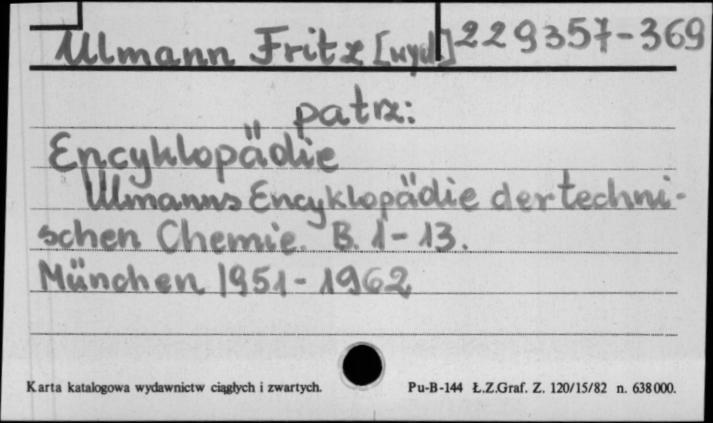 Ulmann Fritz [wyd.] 229357-369
patrz:
Encyklopädie
Ulmanns Encyklopädie der techni-
schen Chemie. B. 1-13.
München 1951-1962
Karta katalogowa wydawnictw ciągłych i zwartych. Pu-B-144 Ł.Z.Graf. Z. 120/15/82 n. 638000.